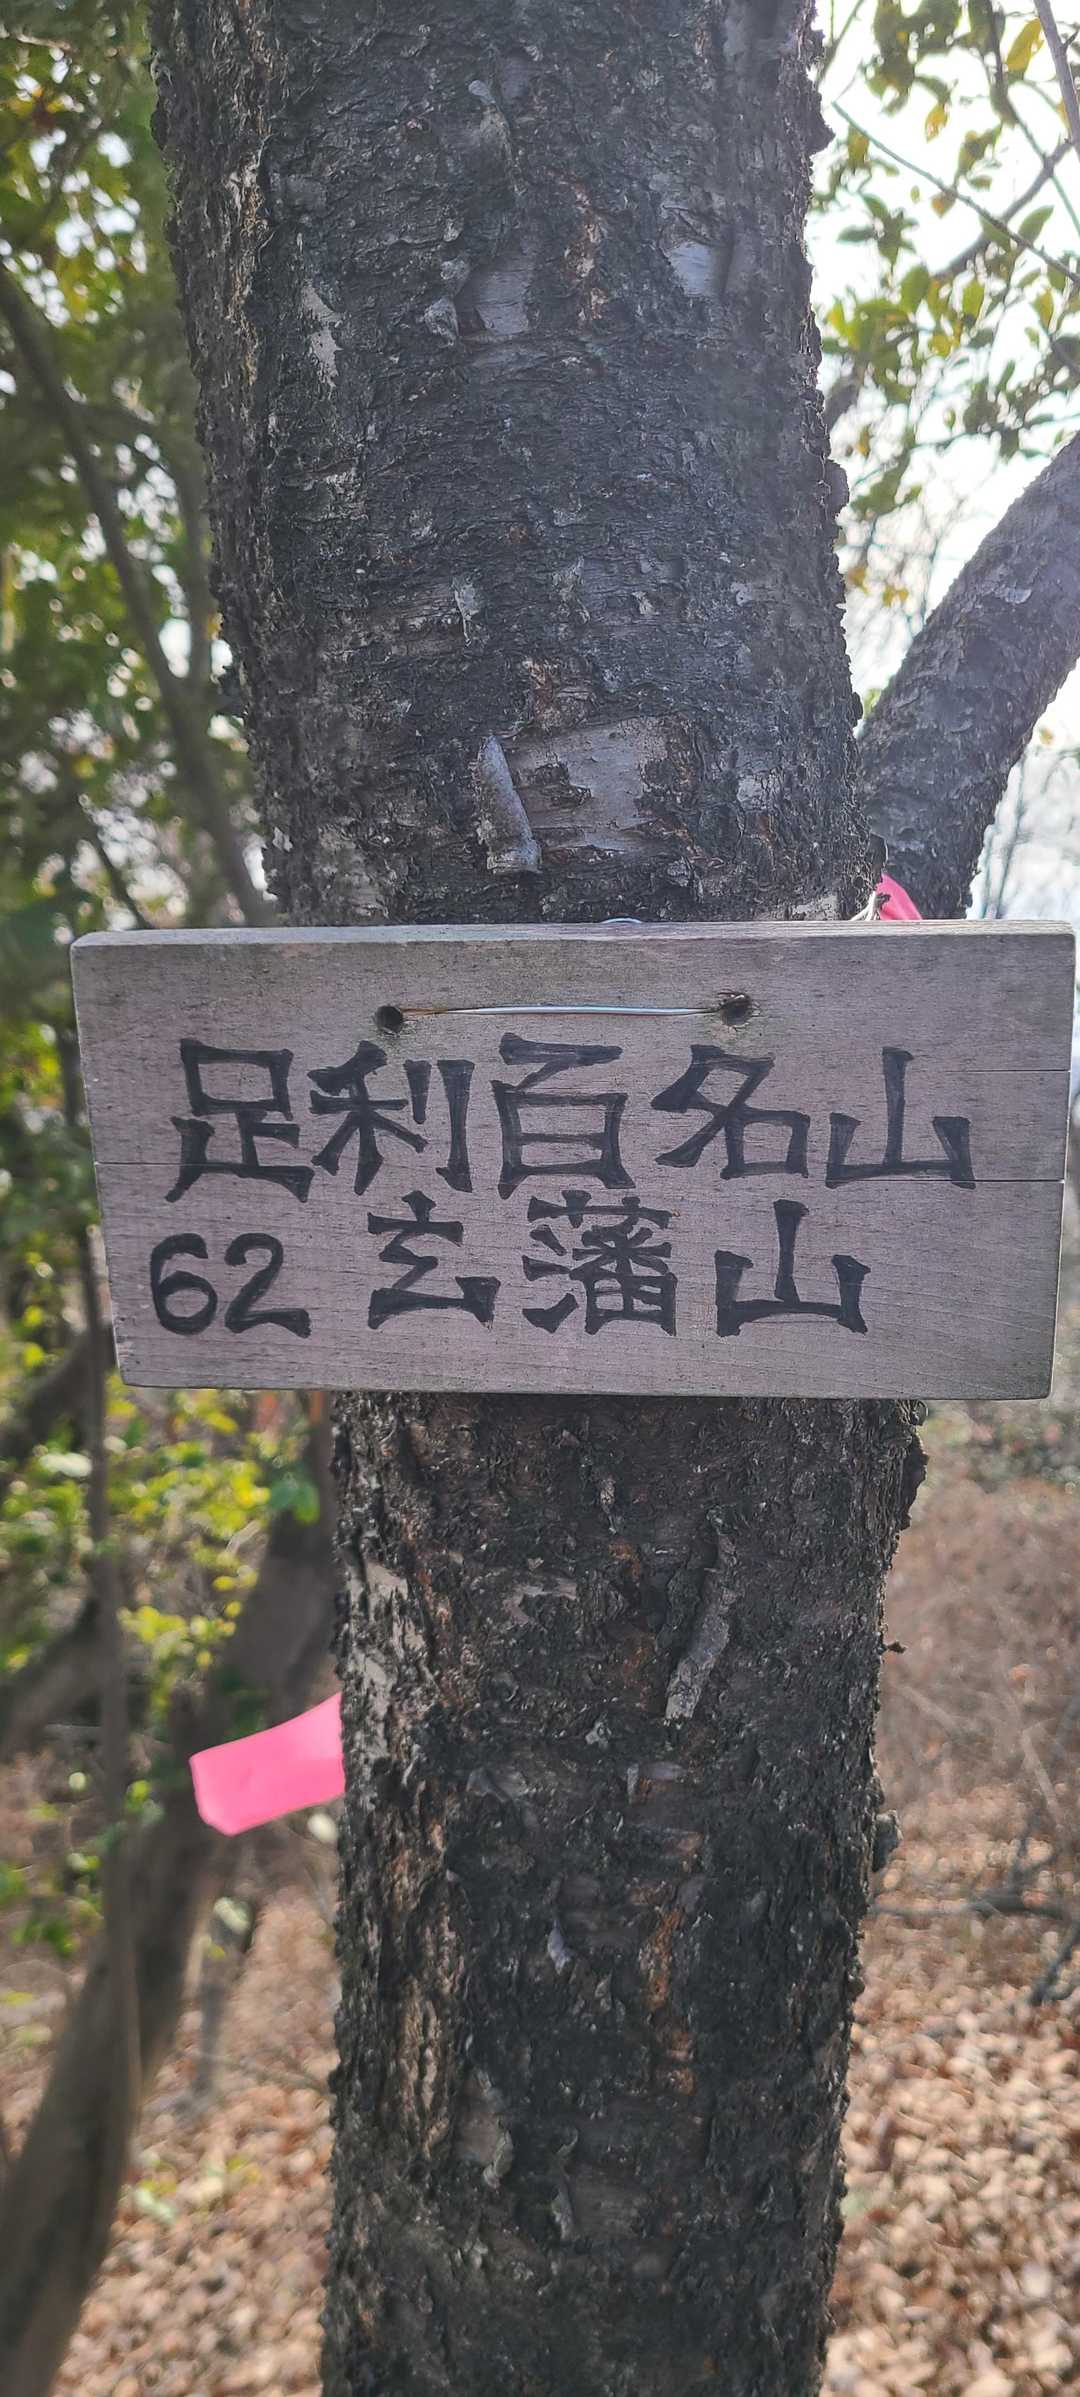 足利百名山
62 玄蕃山